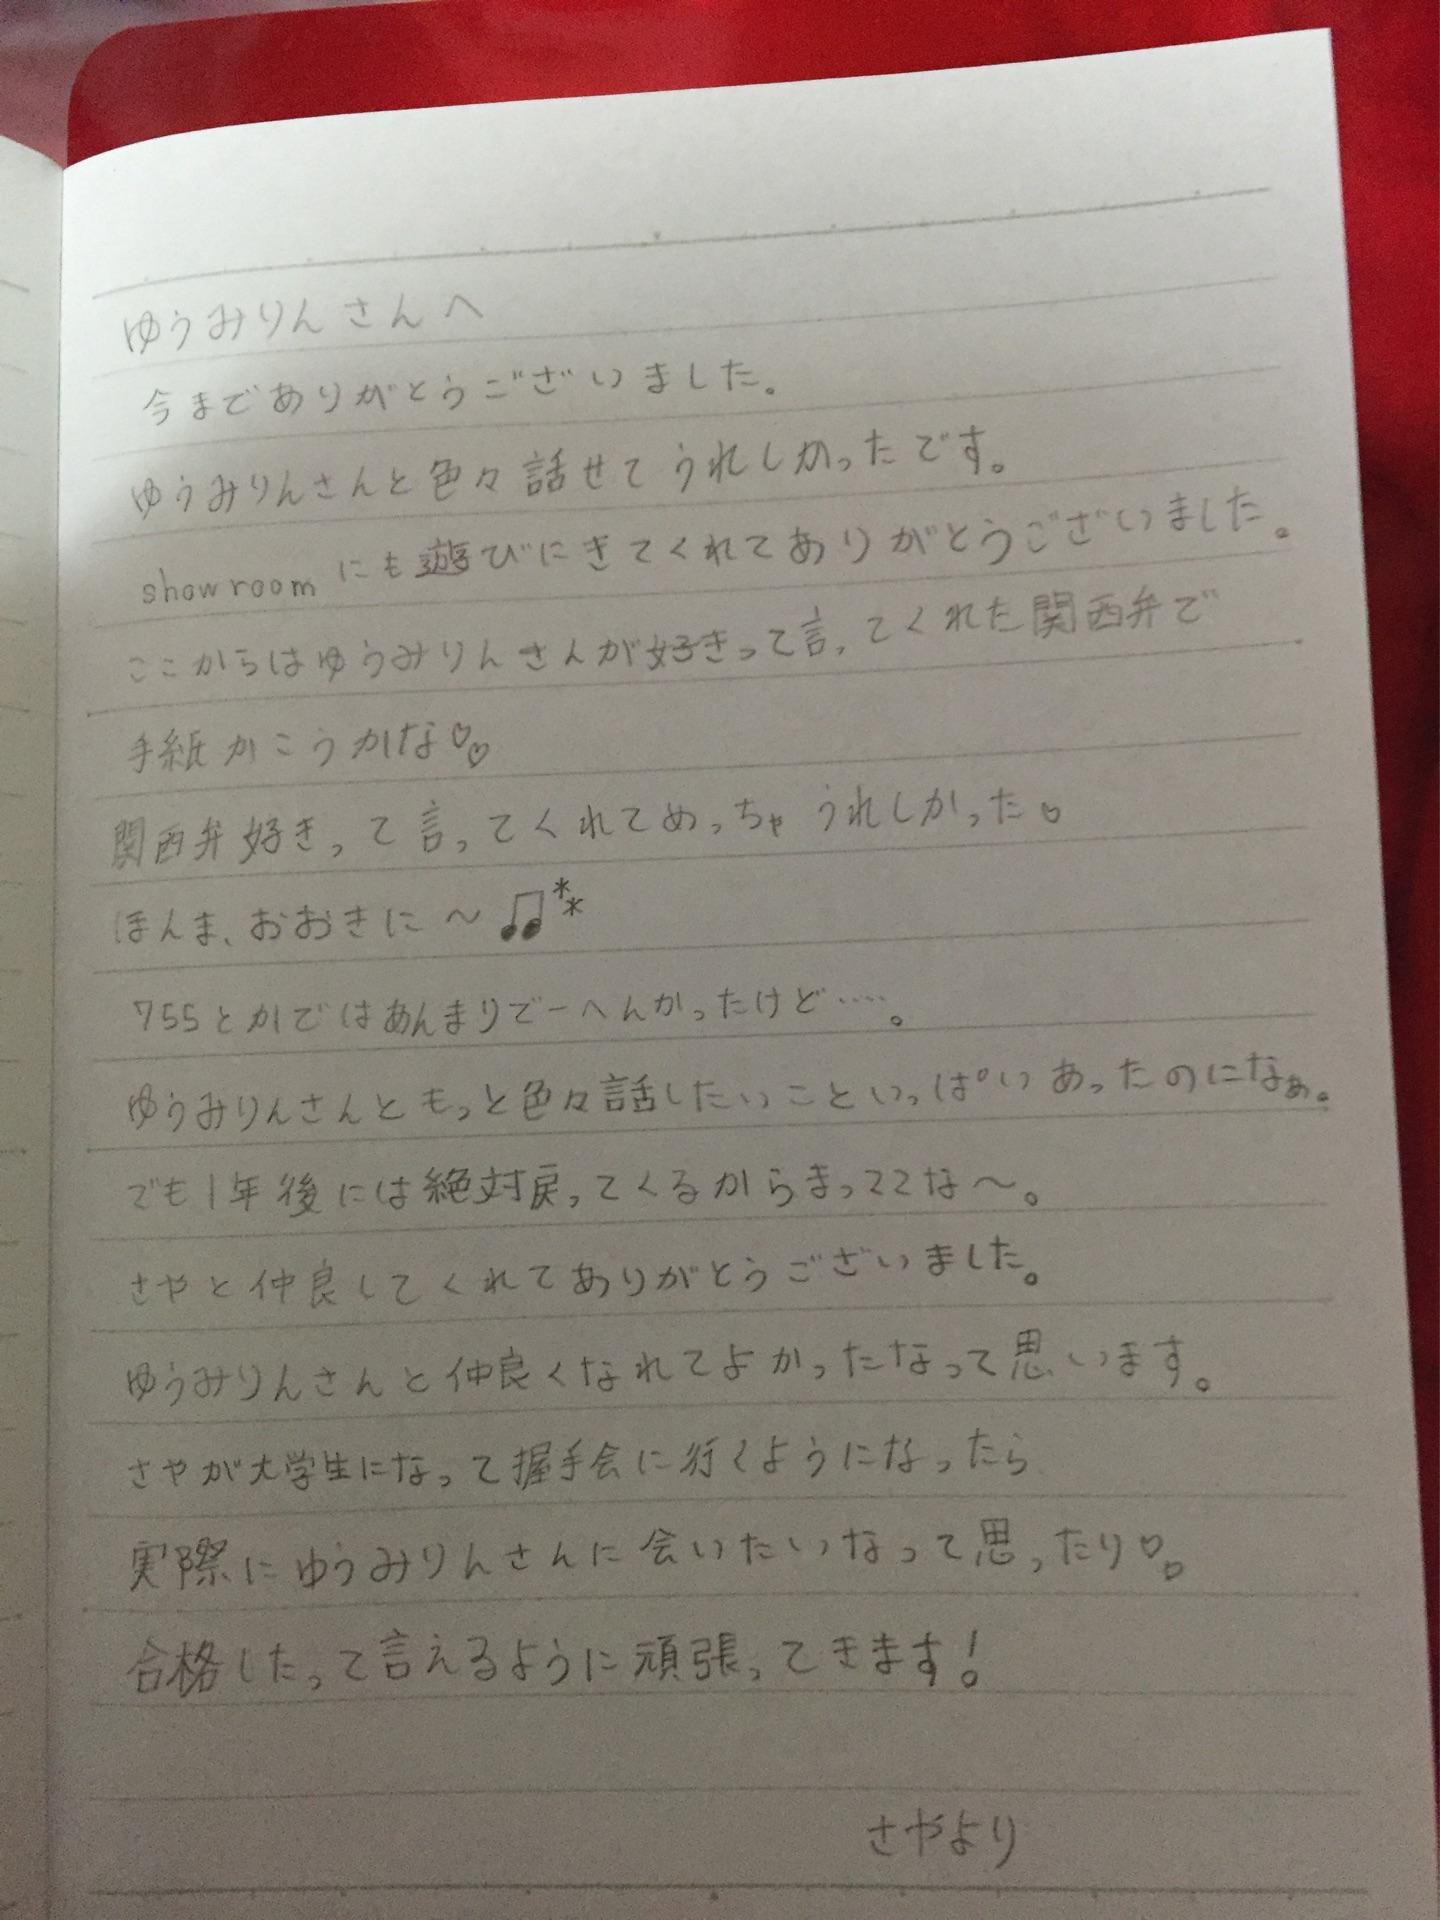 ゆうみりんさんへ
今までありがとうございました。
ゆうみりんさんと色々話せてうれしかったです。
showroomにも遊びにきてくれてありがとうございました。
ここからはゆうみりんさんが好きって言ってくれた関西弁で
手紙かこうかな♡♡
関西弁好きって言ってくれてめっちゃうれしかった♡
ほんま、おおきに〜♫**
755とかではあんまりでーへんかったけど……。
ゆうみりんさんともっと色々話したいこといっぱいあったのになぁ。
でも1年後には絶対戻ってくるからまっててな〜。
さやと仲良してくれてありがとうございました。
ゆうみりんさんと仲良くなれてよかったなって思います。
さやが大学生になって握手会に行くようになったら
実際にゆうみりんさんに会いたいなって思ったり♡♡
合格したって言えるように頑張ってきます!
さやより